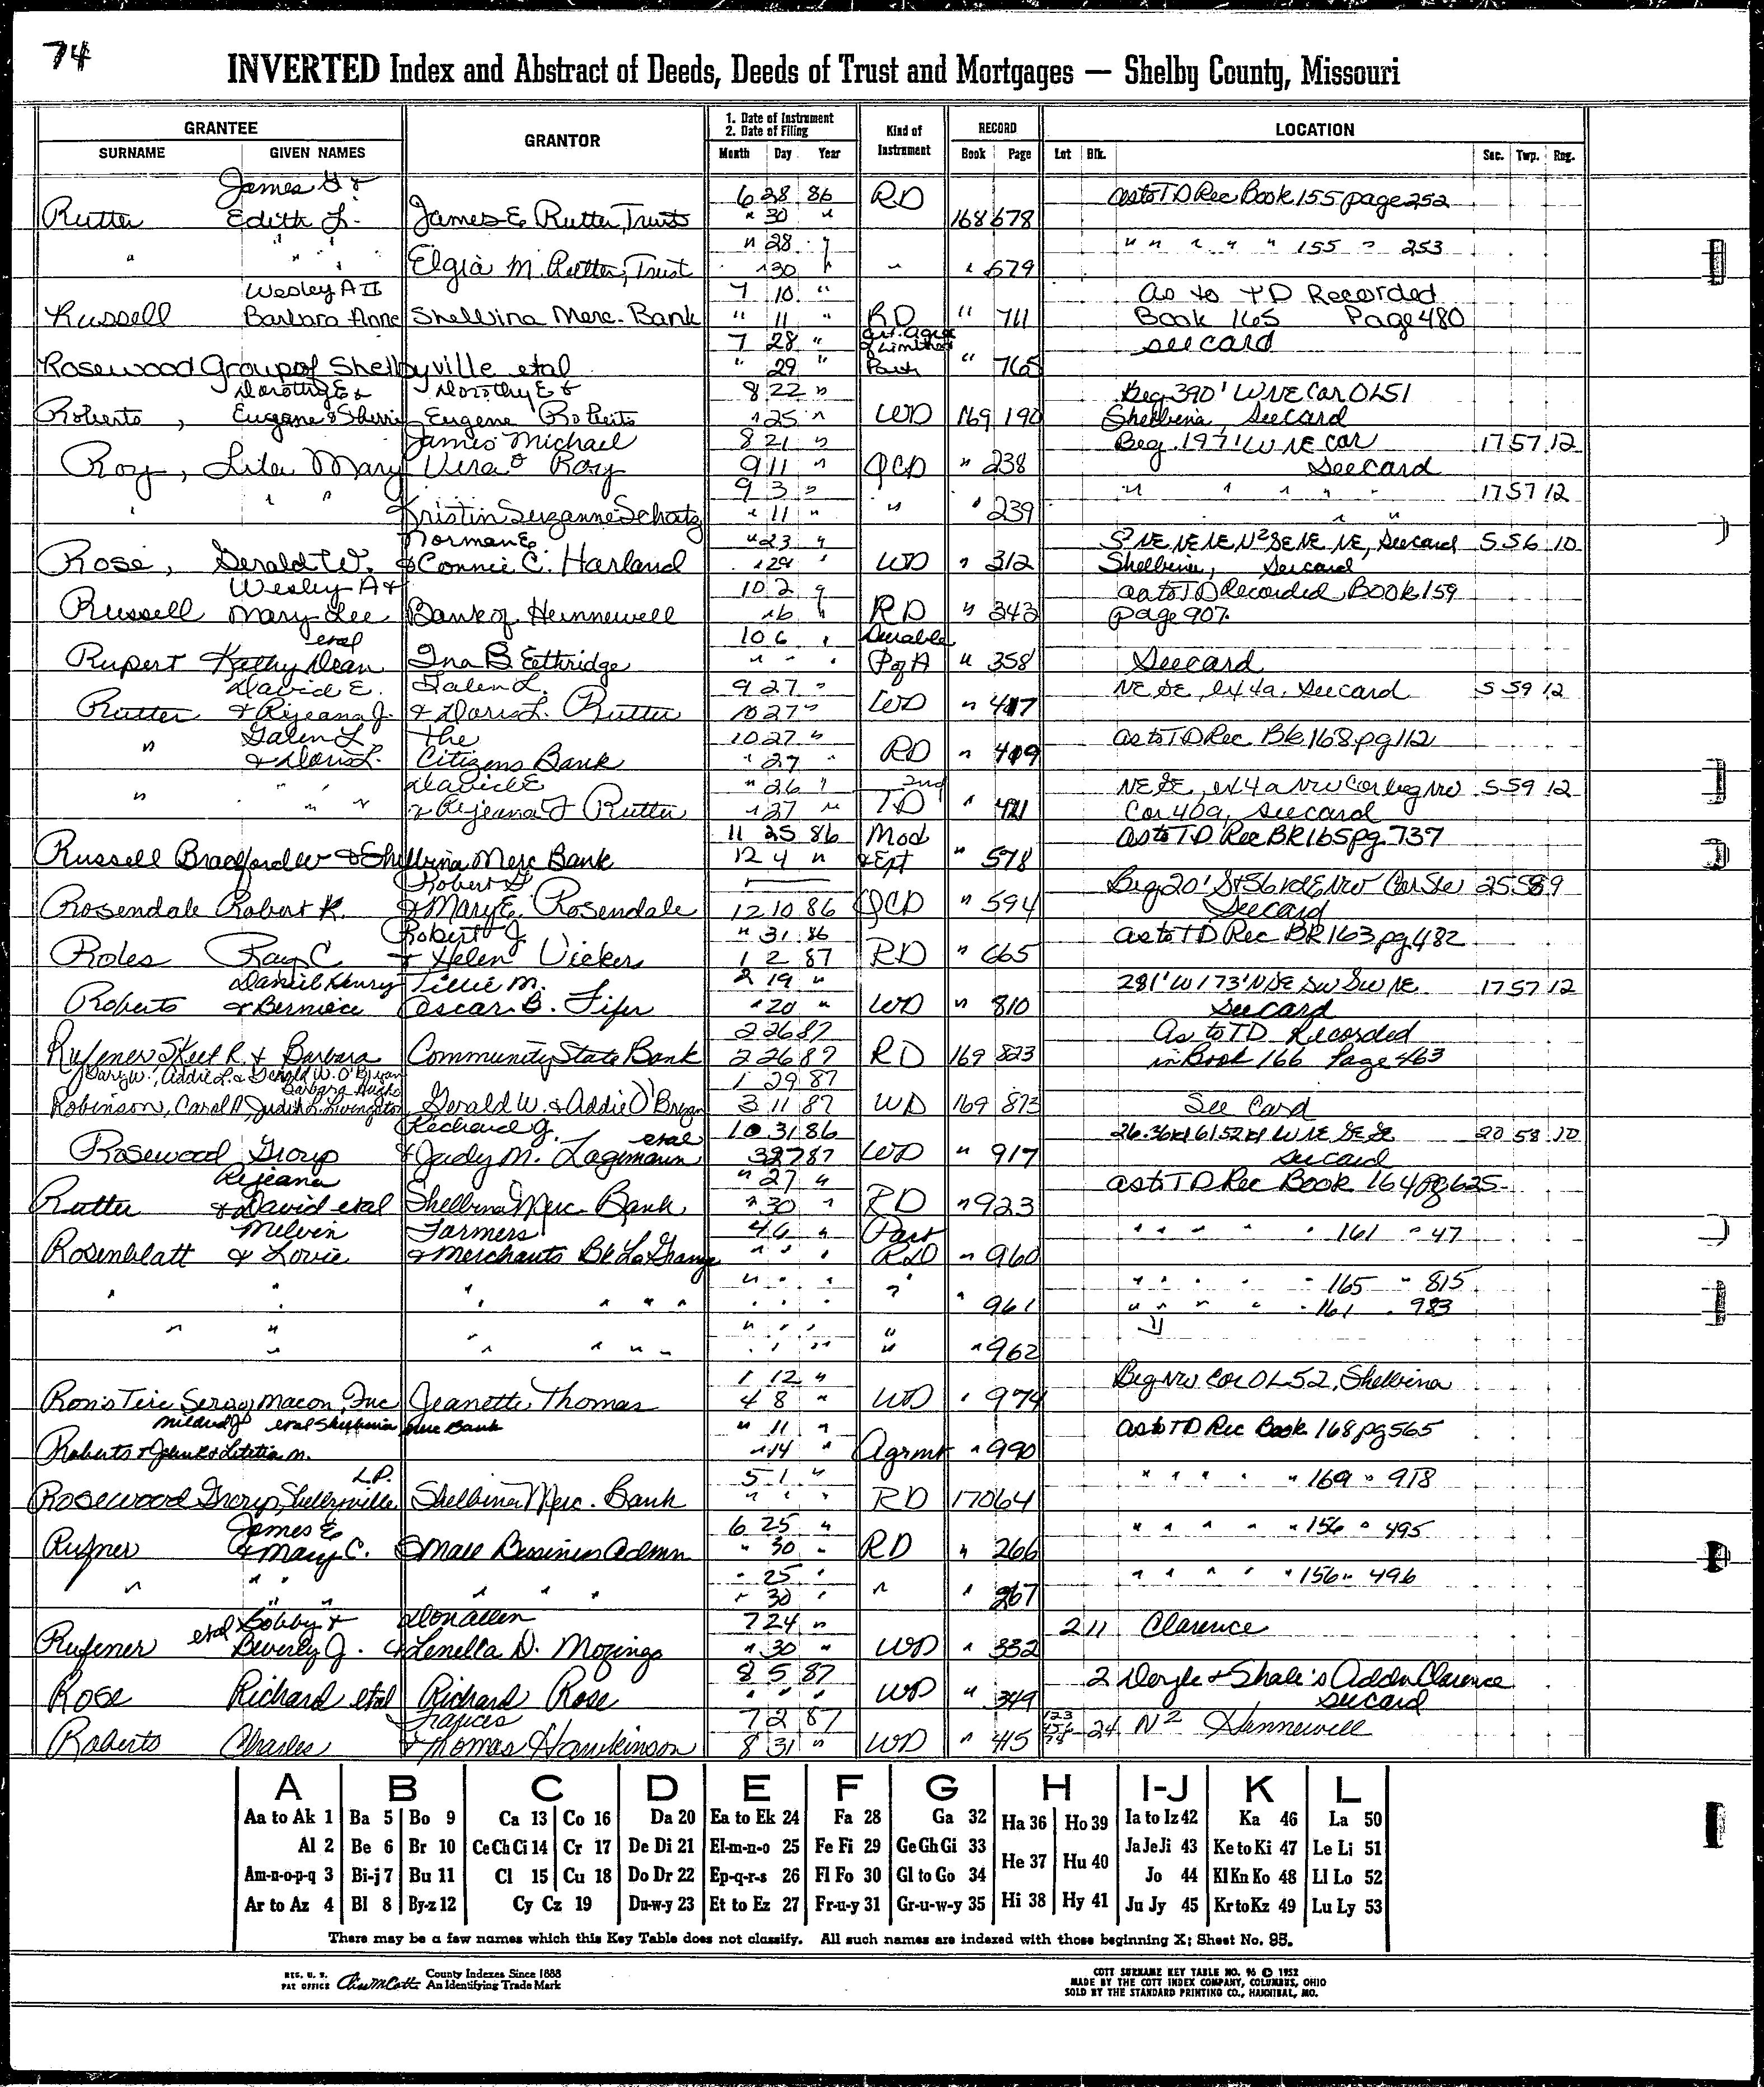 74
INVERTED Index and Abstract of Deeds, Deeds of Trust and Mortgages — Shelby County, Missouri
GRANTEE GRANTOR 1. Date of Instrument 2. Date of Filing Kind of Instrument RECORD LOCATION
SURNAME GIVEN NAMES Month Day Year Book Page Lot Blk. Sec. Twp. Rng.
James G & 6 28 86 RD as to TD Rec Book 155 page 252
Rutter Edith L. James E Rutter, Trusts " 30 " 168 678
" " " " 28 " " " " " " 155 " 253
" " " Elgia M. Rutter, Trust " 30 " " " 679
Wesley A II 7 10 " As to TD Recorded
Russell Barbara Anne Shelbina Merc. Bank " 11 " RD " 711 Book 165 Page 480
7 28 " see card
Rosewood Group of Shelbyville etal " 29 " " 765
Dorothy E & Dorothy E & 8 22 " Beg 390' W NE Cor OL 51
Roberts, Eugene & Sherrie Eugene Roberts " 25 " WD 169 190 Shelbina, see card
James Michael 8 21 " Beg. 197' W NE Cor 17 57 12
Roy, Lila Mary Vera & Roy 9 11 " QCD " 238 see card
9 3 " " " " " " 17 57 12
" " " Kristin Suzanne Schatz " 11 " " " 239 " "
Norman E " 23 " S² NE NE NE N² SE NE NE, see card 5 56 10
Rose, Gerald W. & Connie C. Harland " 29 " WD " 312 Shelbina, see card
Wesley A & 10 2 " as to TD Recorded Book 159
Russell Mary Lee Bank of Hunnewell " 6 " RD " 343 page 907.
etal 10 6 " Durable
Rupert Kathy Dean Ina B. Eethridge " " " P of A " 358 See card
David E. Galen L. 9 27 " NE SE, ex 4a. see card 5 59 12
Rutter & Rijeana J. & Doris L. Rutter 10 27 " WD " 417
Galen L The 10 27 " as to TD Rec Bk 168 pg 112
" & Doris L. Citizens Bank " 27 " RD " 419
David E " 26 " 2nd NE SE, ex 4a NW Cor beg NW 5 59 12
" " " " & Rijeana J Rutter " 27 " TD " 421 Cor 40a, see card
11 25 86 Mod as to TD Rec BK 165 pg. 737
Russell Bradford W & Shelbina Merc Bank 12 4 " & Ext " 578
Robert G Beg 20' S & 56 rd E NW Cor SW 25 58 9
Rosendale Robert K. & Mary E. Rosendale 12 10 86 QCD " 594 See card
Robert J. " 31 86 as to TD Rec BK 163 pg 482
Roles Ray C & Helen Vicker 1 2 87 RD " 665
Daniel Henry Tillie M. 2 19 " 281' W 173' N SE SW SW NE 17 57 12
Roberts & Berniece Oscar B. Fifer " 20 " WD " 810 see card
2 26 87 As to TD Recorded
Rufener Skeet R. & Barbara Community State Bank 2 26 87 RD 169 823 in Book 166 Page 463
Gary W., Addie L. & Gerald W. O'Bryan 1 29 87
Barbara Hughes
Robinson, Carol A, Judith L. Livingston Gerald W. & Addie O'Bryan 3 11 87 WD 169 873 See Card
Richard G. 10 31 86 26.36 rd 6 1/52 rd W NE SE SE 20 58 10
Rosewood Group & Judy M. Lagemann etal 3 27 87 WD " 917 see card
Rijeana " 27 " as to TD Rec Book 164 pg 625
Rutter & David etal Shelbina Merc. Bank " 30 " RD " 923
Melvin Farmers 4 6 " Part " " " " 161 " 47
Rosenblatt & Lovie & Merchants Bk La Grange " " " RD " 960
" " " " " " " " 165 " 815
" " " " " " " " " " 961 " " " " " 161 " 983
" " " " " " "
" " " " " " " " " " 962
1 12 " Beg NW Cor OL 52, Shelbina
Ron's Tire Serv of Macon, Inc Jeanette Thomas 4 8 " WD " 974
Mildred J etal Shelbina Merc Bank " 11 " as to TD Rec Book 168 pg 565
Roberts & John K & Letitia M. " 14 " Agrmt " 990
L.P. 5 1 " " " " " " 169 " 918
Rosewood Group, Shelbyville Shelbina Merc. Bank " " " RD 170 64
James E 6 25 " " " " " " 156 " 495
Rufner & Mary C. Small Business Admn " 30 " RD " 266
" " " 25 " " " " " " 156 " 496
" " " " " " " 30 " " " 267
etal Bobby & Don Allen 7 24 " 2 11 Clarence
Rufener Beverly J. & Lenella D. Mozingo " 30 " WD " 332
8 5 87 2 Doyle & Shale's Addn Clarence
Rose Richard etal Richard Rose " " " WD " 349 see card
Frances 7 2 87 24 N² Hunnewell
Roberts Charles & Thomas Hawkinson 8 31 " WD " 415
A B C D E F G H I-J K L
Aa to Ak 1 Ba 5 Bo 9 Ca 13 Co 16 Da 20 Ea to Ek 24 Fa 28 Ga 32 Ha 36 Ho 39 Ia to Iz 42 Ka 46 La 50
Al 2 Be 6 Br 10 Ce Ch Ci 14 Cr 17 De Di 21 El-m-n-o 25 Fe Fi 29 Ge Gh Gi 33 He 37 Hu 40 Ja Je Ji 43 Ke to Ki 47 Le Li 51
Am-n-o-p-q 3 Bi-j 7 Bu 11 Cl 15 Cu 18 Do Dr 22 Ep-q-r-s 26 Fl Fo 30 Gl to Go 34 Jo 44 Kl Kn Ko 48 Ll Lo 52
Ar to Az 4 Bl 8 By-z 12 Cy Cz 19 Du-w-y 23 Et to Ez 27 Fr-u-y 31 Gr-u-w-y 35 Hi 38 Hy 41 Ju Jy 45 Kr to Kz 49 Lu Ly 53
There may be a few names which this Key Table does not classify. All such names are indexed with those beginning X; Sheet No. 95.
REG. U. S. PAT OFFICE County Indexes Since 1888 An Identifying Trade Mark
COTT SURNAME KEY TABLE NO. 96 © 1952
MADE BY THE COTT INDEX COMPANY, COLUMBUS, OHIO
SOLD BY THE STANDARD PRINTING CO., HANNIBAL, MO.